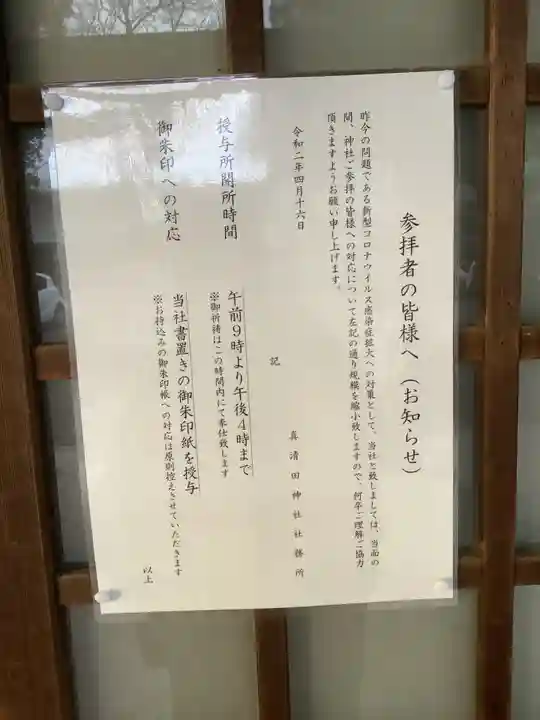 参拝者の皆様へ(お知らせ)
昨今の問題である新型コロナウイルス感染症拡大への対策として、当社と致しましては、当面の
間、神社ご参拝の皆様への対応について左記の通り規模を縮小致しますので、何卒ご理解ご協力
頂きますようお願い申し上げます。
令和二年四月十六日
真清田神社社務所
記
授与所開所時間
午前9時より午後4時まで
※御祈祷はこの時間内にて奉仕致します
御朱印への対応
当社書置きの御朱印紙を授与
※お持込みの御朱印帳への対応は原則控えさせていただきます
以上